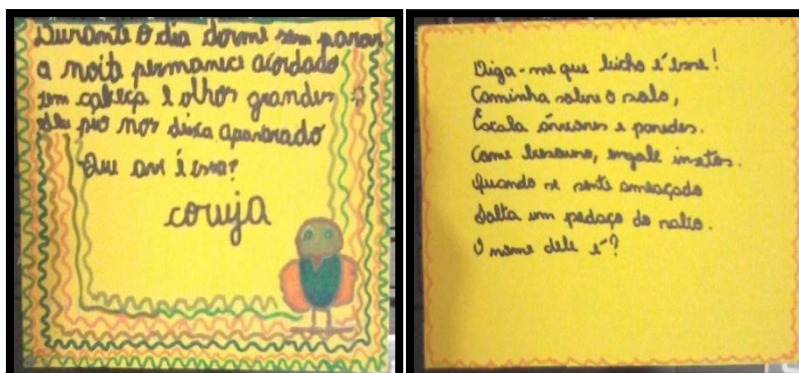 Durante o dia dorme sem parar
a noite permanece acordado
tem cabeça e olhos grandes
seu pio nos deixa apavorado
Que ave é essa?
coruja
Diga-me que bicho é esse!
Caminha sobre o solo,
Escala árvores e paredes.
Come besouro, engole insetos.
Quando se sente ameaçado
Solta um pedaço do rabo.
O nome dele é?